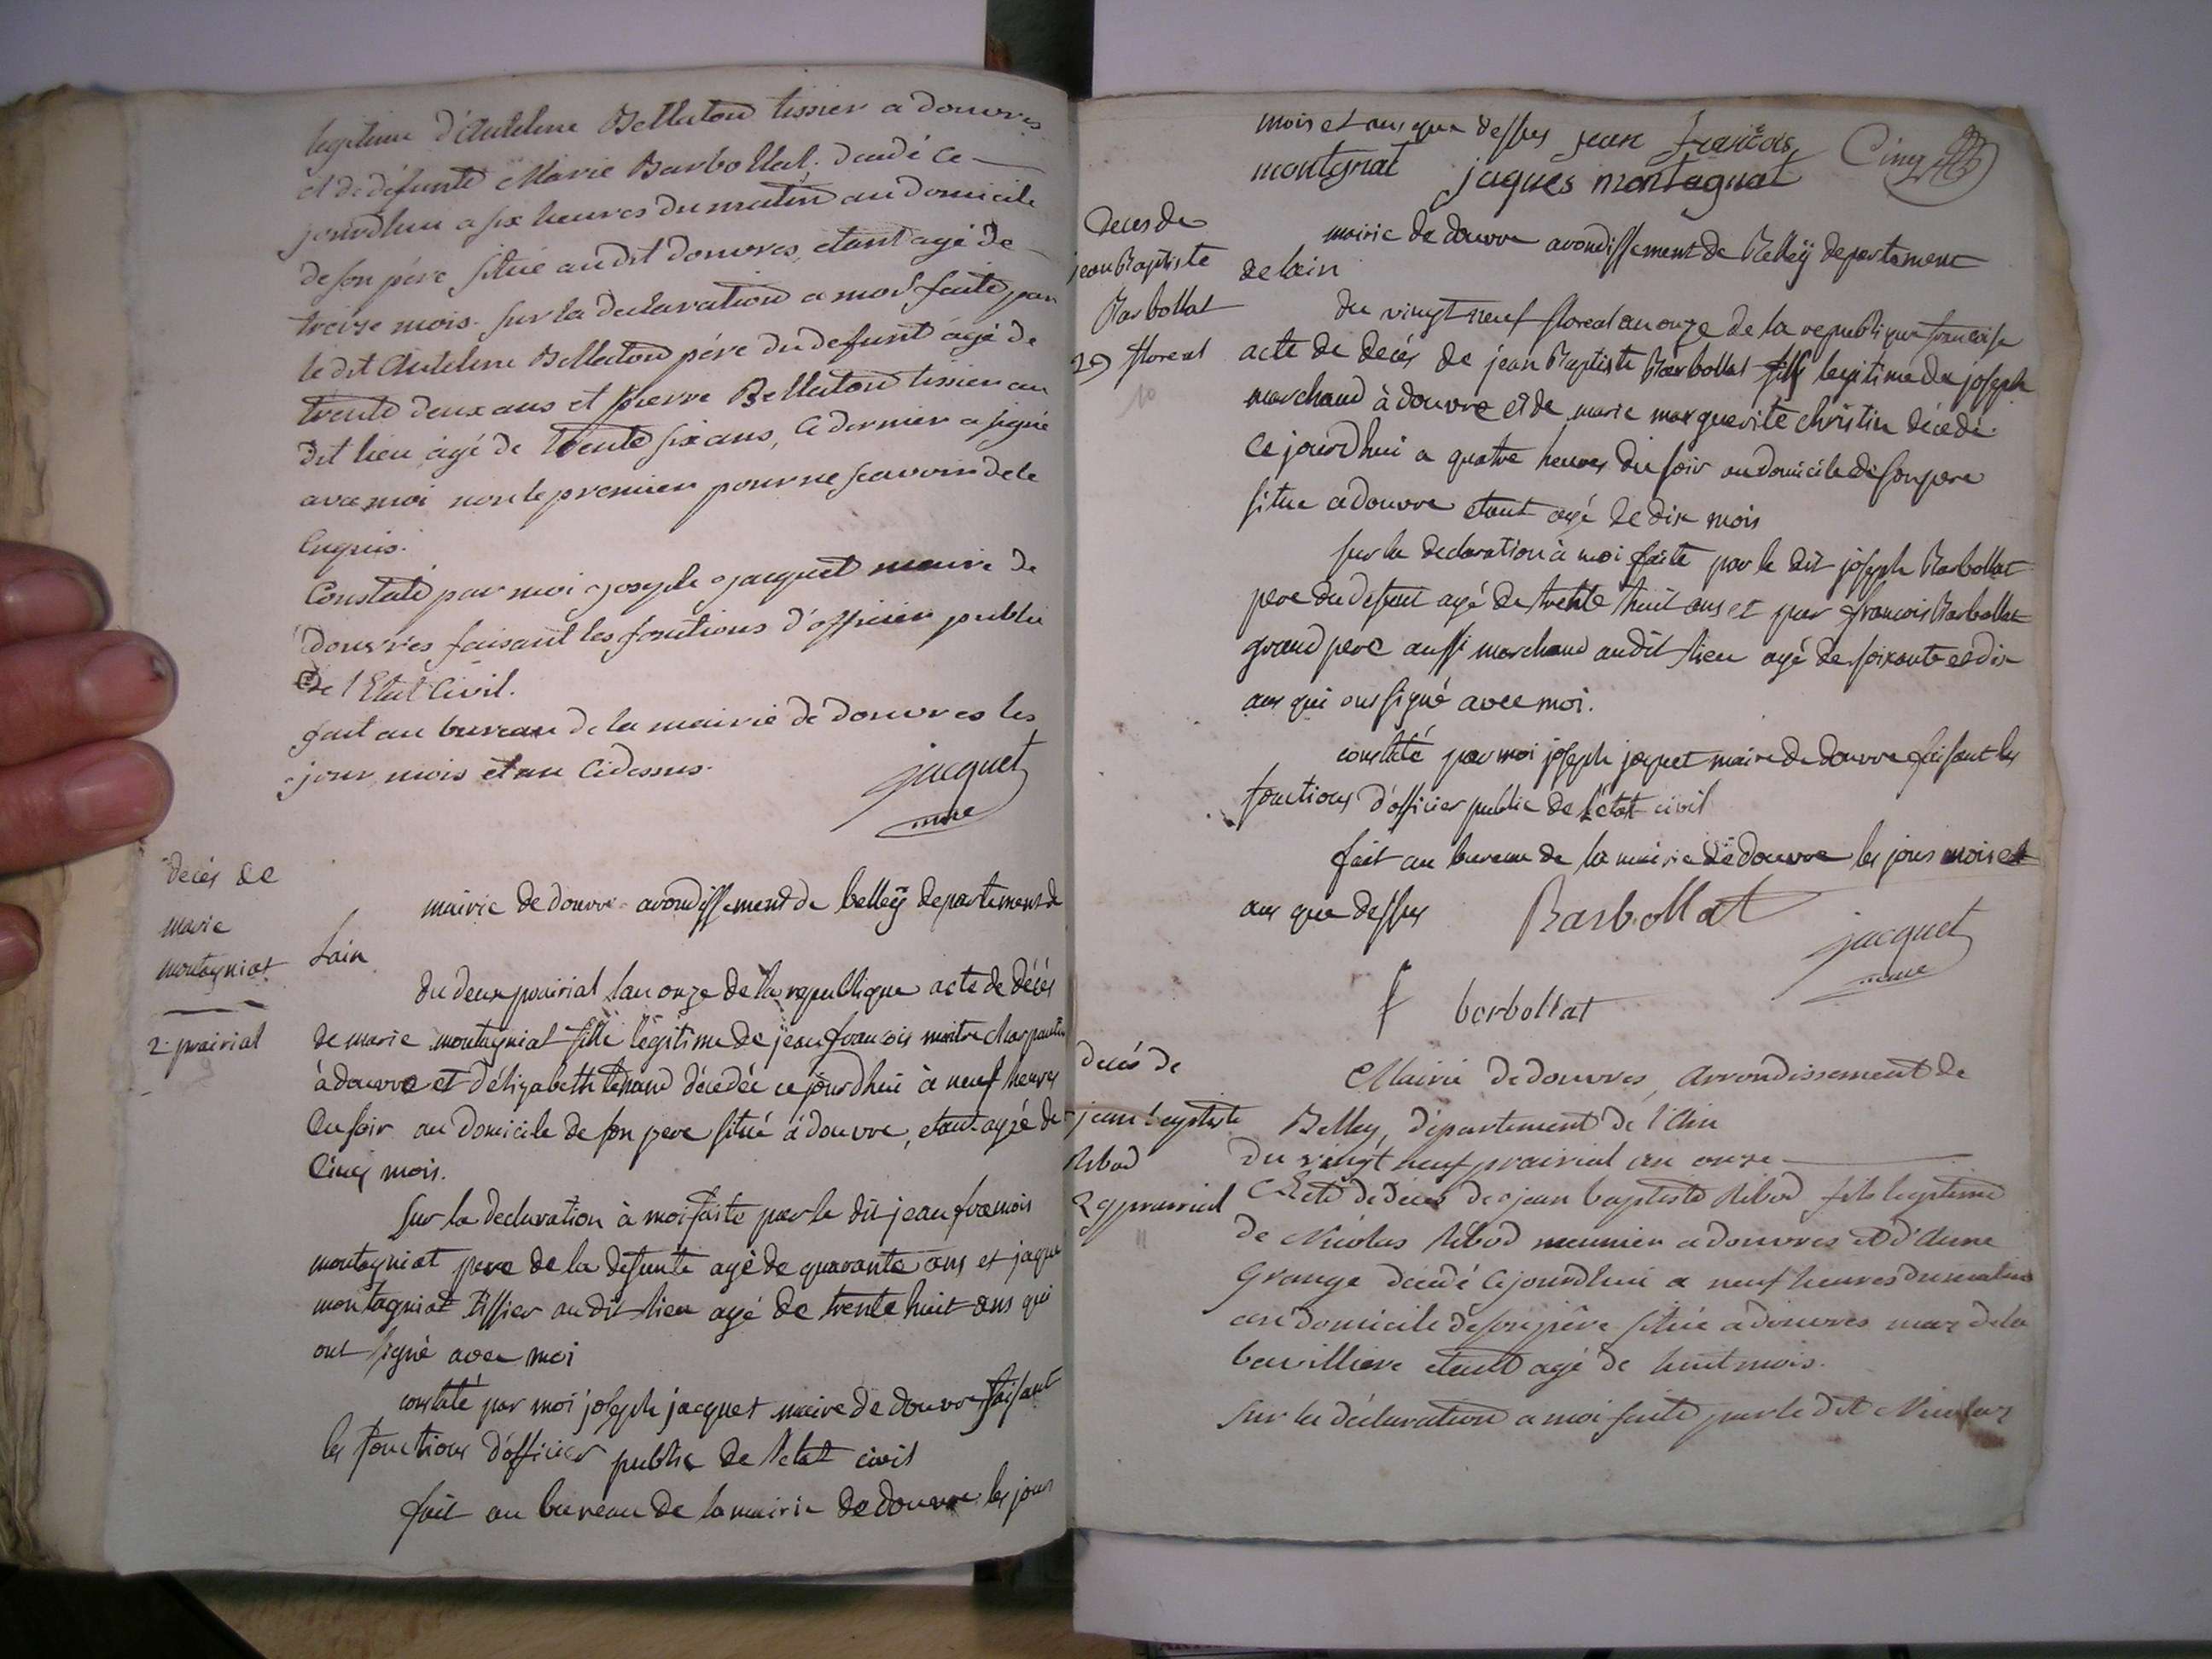 legitime d'Anthelme Belleton tissier a douvres
et de défunte Marie Barbollat, decédé ce
jourdhui a six heures du matin au domicile
de son pére situé au dit douvres, etant agé de
treize mois. sur la declaration a moi faite par
le dit Anthelme Belleton pére du defunt agé de
trente deux ans et pierre Belleton tissier au
dit lieu agé de trente six ans, ce dernier a signé
avec moi non le premier pour ne scavoir de ce
Enquis.
Constaté par moi joseph jacquet maire de
douvres faisant les fonctions d'officier public
de l'Etat Civil.
fait au bureau de la mairie de douvres les
jour, mois et an cidessus.
jacquet
mre
décés de
marie
montagniat
2 prairial
9
mairie de douvre arondissement de belleÿ departement de
lain
du deux prairial lan onze de la republique acte de décés
de marie montagniat fille légitime de jean francois maitre charpantier
à douvre et d'élizabeth décedée ce jourdhui à neuf heures
du soir au domicile de son pere situé à douvre, etant agée de
Cinq mois.
sur la declaration à moi faite par le dit jean francois
montagniat pere de la defunte agé de quarante ans et jaque
montagniat tissier au dit lieu agé de trente huit ans qui
ont signé avec moi
constaté par moi joseph jacquet maire de douvre faisant
les fonctions d'officier public de l'etat civil
fait au bureau de la mairie de douvre les jour
mois et ans que dessus jean francois
montgnat jaques montagnat
Cinq
Deces de
jean Baptiste
Barbollat
29 floreal
10
mairie de douvre arondissement de Belleÿ departement
de lain
du vingt neuf floreal an onze de la republique francaise
acte de decés de jean Baptiste Barbollat fils legitime de joseph
marchand à douvre et de marie marguerite christin décedé
ce jourdhui a quatre heures du soir au domicile de son pere
situe a douvre etant agé de dix mois
sur la declaration à moi faite par le dit joseph Barbollat
pere du defunt agé de trente huit ans et par francois Barbollat
grand pere aussi marchand au dit lieu agé de soixante et dix
ans qui ont signé avec moi.
constaté par moi joseph jaquet maire de douvre faisant les
fonctions d'officier public de l'état civil
fait au bureau de la mairie de douvre les jours mois et
ans que dessus Barbollat
jacquet
mre
f barbollat
decés de
jean baptiste
Ribod
29 prairial
11
Mairie de douvres, arrondissement de
Belley, département de l'Ain
du vingt neuf prairial an onze
Acte de décés de jean baptiste Ribod fils legitime
de Nicolas Ribod meunier a douvres et d'Anne
Grange decédé ce jourdhui a neuf heures du matin
au domicile de son pére situé a douvres de la
etant agé de huit mois.
Sur la déclaration a moi faite par le dit Nicolas